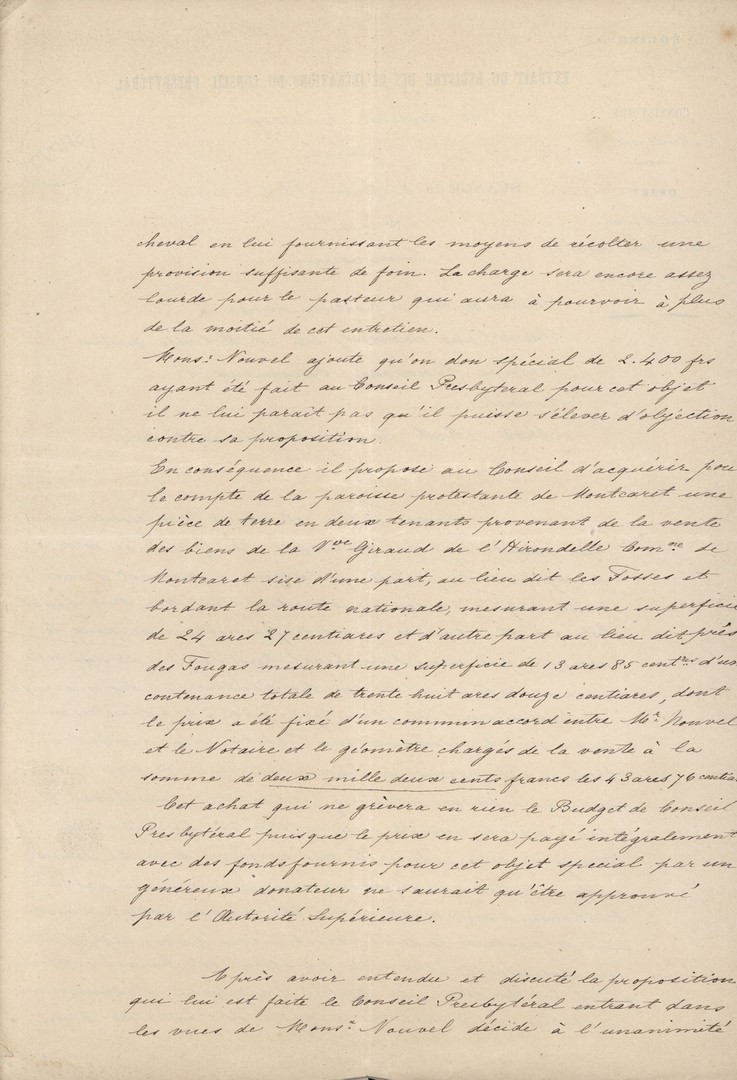 cheval en lui fournissant les moyens de récolter une
provision suffisante de foin. La charge sera encore assez
lourde pour le pasteur qui aura à pourvoir à plus
de la moitié de cet entretien.
Mons: Nouvel ajoute qu'on don spécial de 2.400 frs
ayant été fait au Conseil Presbyteral pour cet objet
il ne lui parait pas qu'il puisse s'élever d'objection
contre sa proposition.
En conséquence il propose au Conseil d'acquérir pour
le compte de la paroisse protestante de Montcaret une
pièce de terre en deux tenants provenant de la vente
des biens de la Vve Giraud de l'Hirondelle Comne de
Montcaret sise d'une part, au lieu dit les Fosses et
bordant la route nationale, mesurant une superficie
de 24 ares 27 centiares et d'autre part au lieu dit près
des Fougas mesurant une superficie de 13 ares 85 centres d'un
contenance totale de trente huit ares douze centiares, dont
le prix a été fixé d'un commun accord entre Mr Nouvel
et le Notaire et le géomètre chargés de la vente à la
somme de deux mille deux cents francs les 43 ares 76 centia
Cet achat qui ne grèvera en rien le Budget de Conseil
Presbytéral puisque le prix en sera payé intégralement
avec des fonds fournis pour cet objet special par un
généreux donateur ne saurait qu'être approuvé
par l'Autorité Supérieure.
Après avoir entendu et discuté la proposition
qui lui est faite le Conseil Presbytéral entrant dans
les vues de Monsr Nouvel décide à l'unanimité